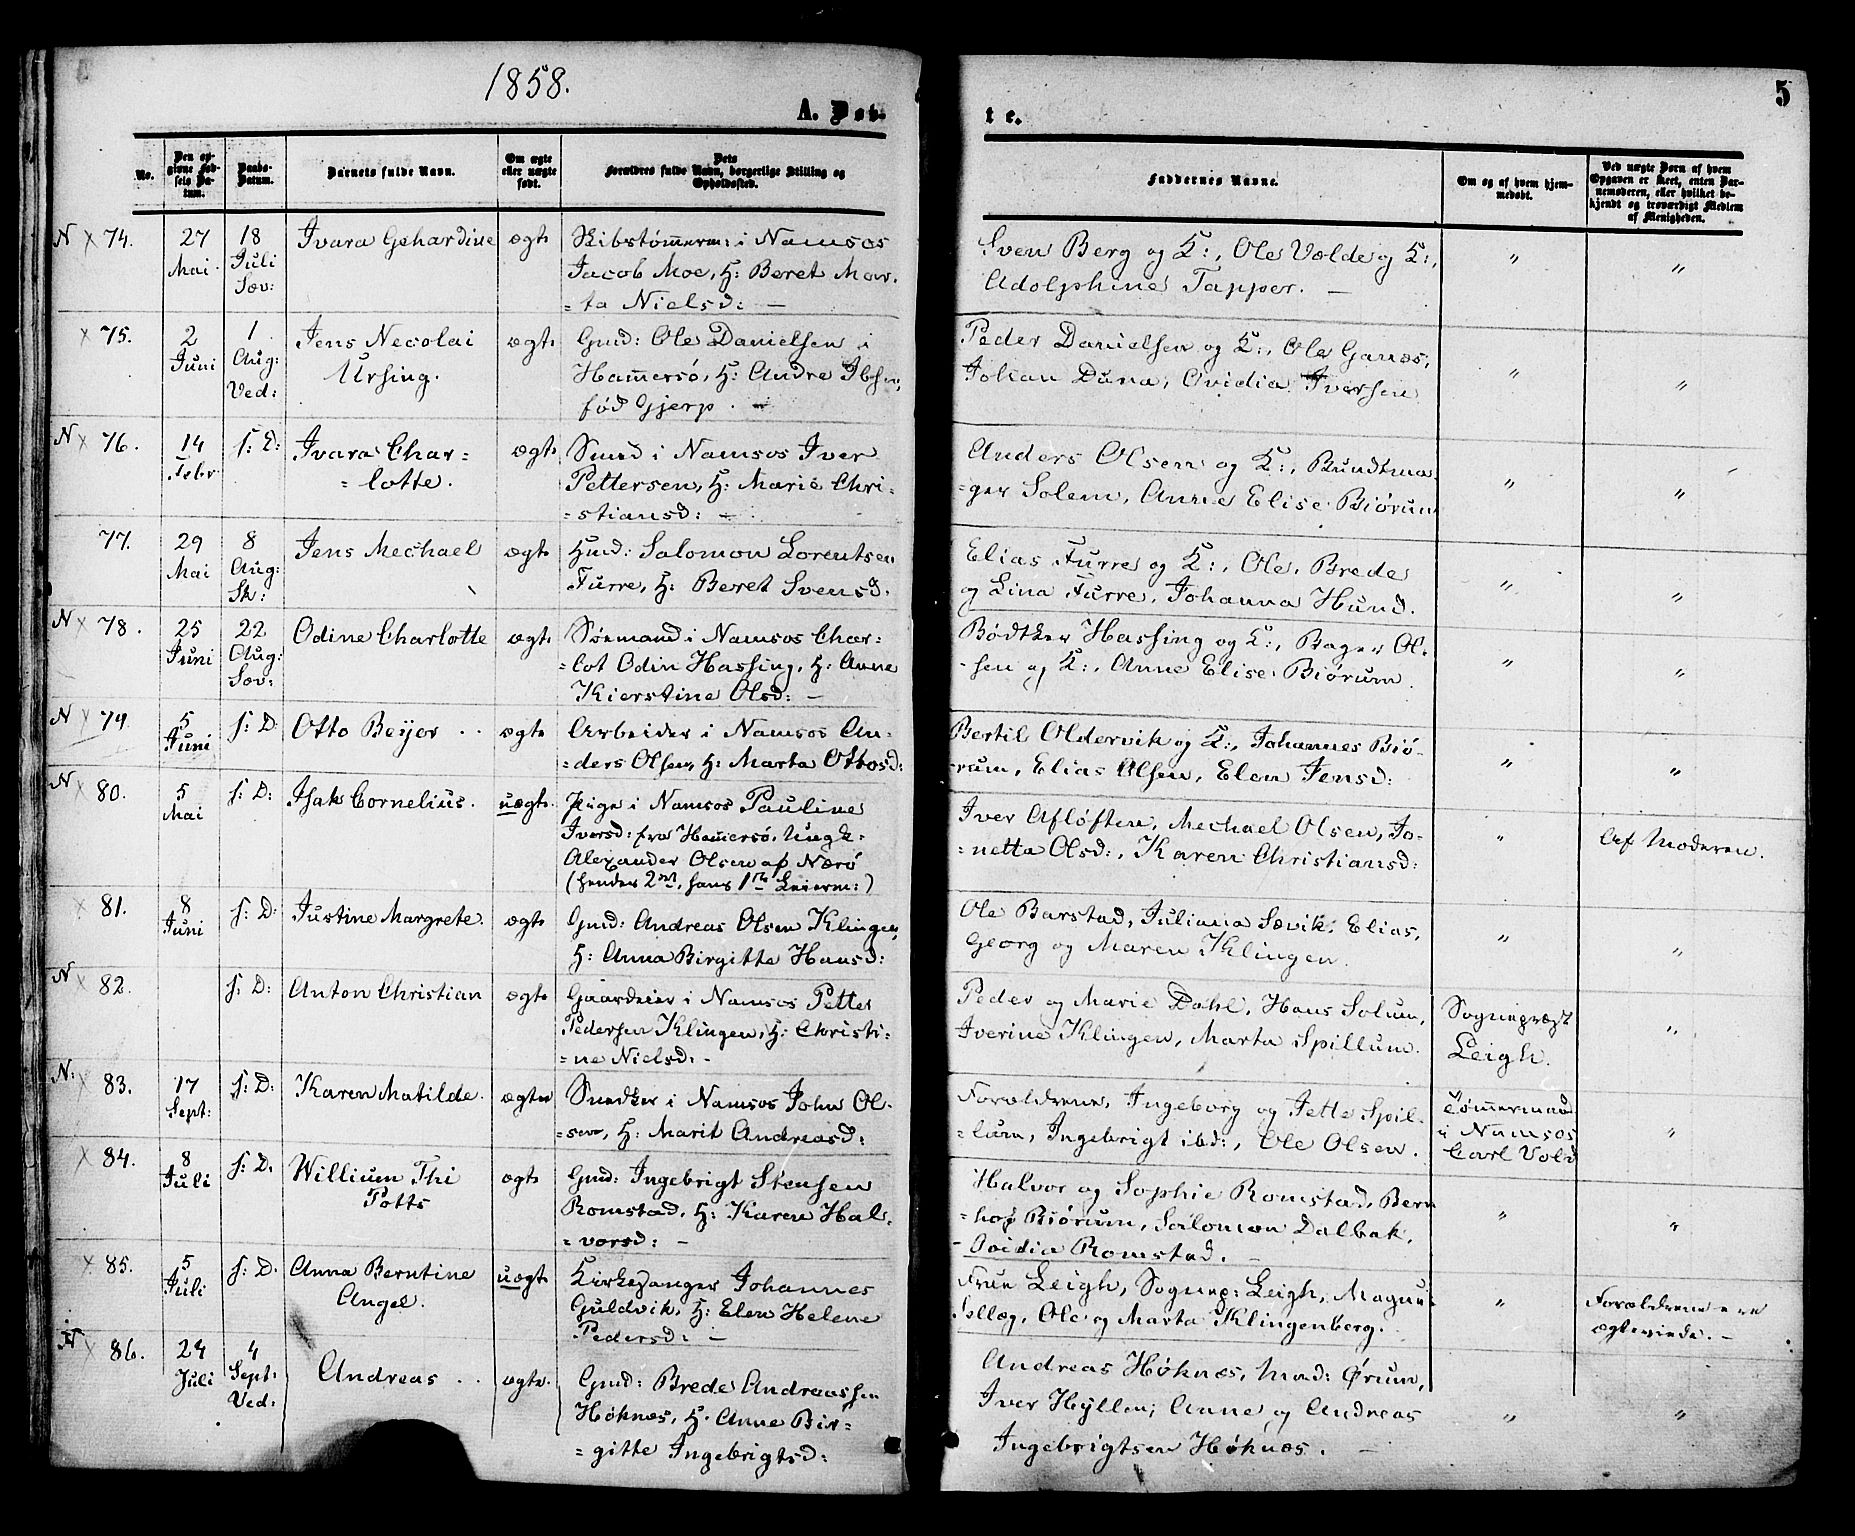 1858.
A. Døb-
te.
5
No.
Den op-
givne Fød-
sels Da-
tum.
Daabs-
Datum.
Barnets fulde Navn.
Om ægte
eller uægte
født.
Dets
Forældres fulde Navn, borgerlige Stilling og
Opholdssted.
Faddernes Navne.
Om og af hvem hjem-
medøbt.
Ved uægte Børn af hvem
Opgaven er skeet, enten Bar-
nemoderen, eller hvilket be-
kjendt og troværdigt Medlem
af Menigheden.
N x 74.
27
Mai.
18
Juli
Sæv:
Ivara Gehardine
ægte
Skibstømmerm: i Namsos
Jacob Moe, H: Beret Mar-
=ta Nielsd: —
Sven Berg og K:, Ole Volde og K:,
Adolphine Tapper. —
"
"
x 75.
2
Juni
1
Aug:
Ved:
Jens Necolai
Ursing.
ægte
Gmd: Ole Danielsen i
Hammersø, H: Andre Ibsen,
fød Gjerp. —
Peder Danielsen og K:, Ole Ganes,
Johan Duna, Ovidia Iversen
"
"
N x 76.
14
Febr
s: D:
Ivara Char=
=lotte.
ægte
Smed i Namsos Iver
Pettersen, H: Marie Chri-
=stiansd: —
Anders Olsen og K:, Bundtma
=ger Solem, Anne Elise Biørum
"
"
77.
29
Mai
8
Aug:
Sk:
Jens Mechael
ægte
Hmd: Salomon Lorentsen
Furre, H: Beret Svensd.
Elias Furre og K:, Ole, Brede
og Lina Furre, Johanna Hund.
"
"
N x 78.
25
Juni
22
Aug:
Sæv:
Odine Charlotte
ægte
Sømand i Namsos Char=
=lot Odin Hassing, H: Anne
Kierstine Olsd: —
Bødtker Hassing og K:, Bager Ol-
-sen og K:, Anne Elise Biørum.
"
"
N x 79
5
Juni
s: D
Otto Beyer . .
ægte
Arbeider i Namsos An-
=ders Olsen, H: Marta Ottosd:
Bertil Oldervik og K:, Johannes Biø-
-rum, Elias Olsen, Elen Jensd:
"
"
N x 80.
5
Mai
s: D:
Isak Cornelius.
uægte.
Pige i Namsos Pauline
Iversd: fra Hammersø, Ungk=
Alexander Olsen af Nærø
(hendes 2det, hans 1ste Leierm:)
Iver Afløften, Mechael Olsen, Jo-
=netta Olsd:, Karen Christiansd:
"
Af Moderen.
x 81.
8
Juni
s: D:
Justine Margrete.
ægte
Gmd: Andreas Olsen Klingen,
H: Anna Birgitte Hansd:
Ole Barstad, Juliana Sævik, Elias,
Georg og Maren Klingen.
"
"
N x 82.
s: D:
Anton Christian
ægte
Gaardeier i Namsos Petter
Pedersen Klingen, H: Christi-
=ne Nielsd: -
Peder og Marie Dahl, Hans Solum,
Iverine Klingen, Marta Spillum.
Sogneprest
Leigh.
"
N: x 83.
17
Sept:
s: D:
Karen Matilde.
ægte
Snedker i Namsos John Ol-
=sen, H: Marit Andreasd:
Forældrene, Ingeborg og Jette Spil-
=lum, Ingebrigt ibd:, Ole Olsen.
Tømmermand
i Namsos
Carl Vold
"
x 84.
8
Juli
s: D.
Willium Thi
Potts
ægte
Gmd: Ingebrigt Stensen
Romstad, H: Karen Hal-
=vorsd: —
Halvor og Sophie Romstad, Bern
=hof Biørum, Salomon Dalbak,
Ovidia Romstad. —
"
"
x 85.
5
Juli
s: D.
Anna Berntine
Angel.
uægte
Kirkesanger Johannes
Guldvik, H: Elen Helene
Pedersd: —
Frue Leigh, Sognep: Leigh, Magnu-
Sellæg, Ole og Marta Klingenberg.
"
Forældrene ere
ægteviede. —
N x 86.
24
Juli
4
Sept:
Ved:
Andreas . .
ægte.
Gmd: Brede Andreassen
Høknæs, H. Anne Bir=
=gitte Ingebrigtsd:
Andreas Høknæs, Ørum,
Iver Hyllen, Anne og Andreas
Ingebrigtsen Høknæs. —
"
"